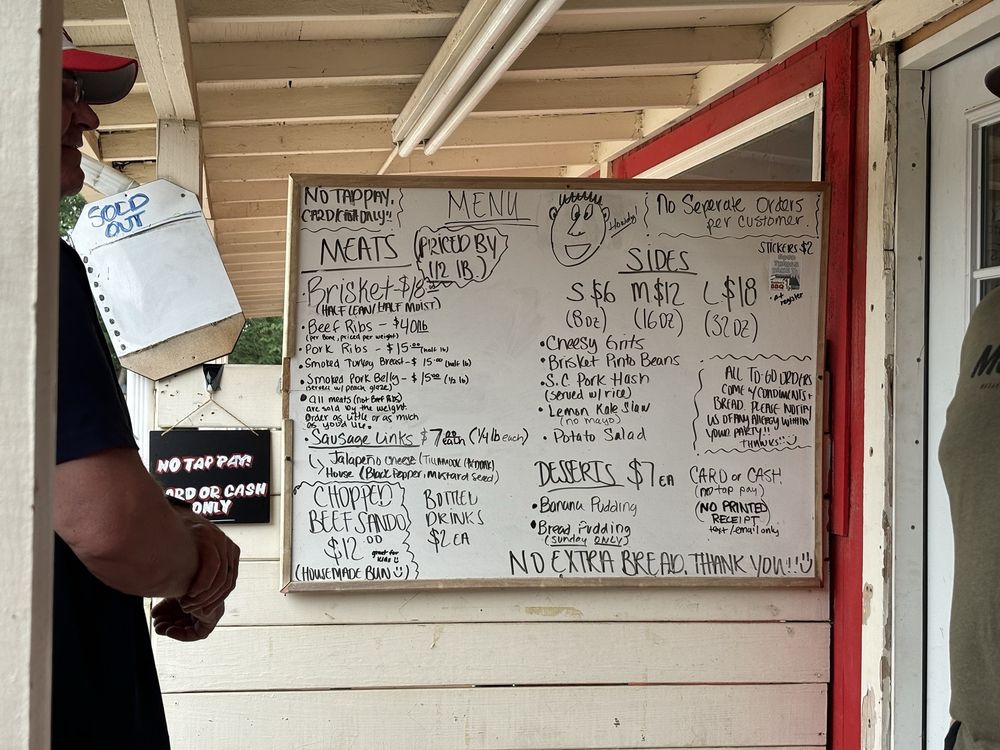 SOLD
OUT
NO TAP PAY!
CARD OR CASH
ONLY
NO TAP PAY.
CARD/CASH ONLY!!
MENU
Howdy!
No Seperate Orders
per customer.
MEATS
(PRICED BY
1/2 LB.)
Brisket-$18.00
(HALF LEAN/HALF MOIST)
• Beef Ribs - $40 lb
(per bone, priced per weight)
• Pork Ribs - $15.00 (half lb)
• Smoked Turkey Breast - $15.00 (half lb)
• Smoked Pork Belly - $15.00 (1/2 lb)
(served w/ peach glaze)
• All meats (not Beef Ribs)
are sold by the weight
order as little or as much
as you'd like.
• Sausage Links $7.00 each (1/4 lb each)
Jalapeño Cheese
House (Black Pepper, Mustard Seed)
CHOPPED
BEEF SANDO
$12.00
great for
kids
(HOUSEMADE BUN)
BOTTLED
DRINKS
$2 EA
STICKERS $2
• at
register
SIDES
S $6 M $12 L $18
(8 oz) (16 oz) (32 oz)
• Cheesy Grits
• Brisket Pinto Beans
• S.C Pork Hash
(served w/ rice)
• Lemon Kale Slaw
(no mayo)
• Potato Salad
ALL TO GO ORDERS
COME W/ CONDIMENTS +
BREAD. PLEASE NOTIFY
US OF ANY ALLERGY WITHIN
YOUR PARTY!!
THANKS!
DESSERTS $7 EA
• Banana Pudding
• Bread Pudding
(Sunday ONLY)
CARD or CASH!
(no tap pay)
(NO PRINTED
RECEIPT
text/email only
NO EXTRA BREAD. THANK YOU!!!